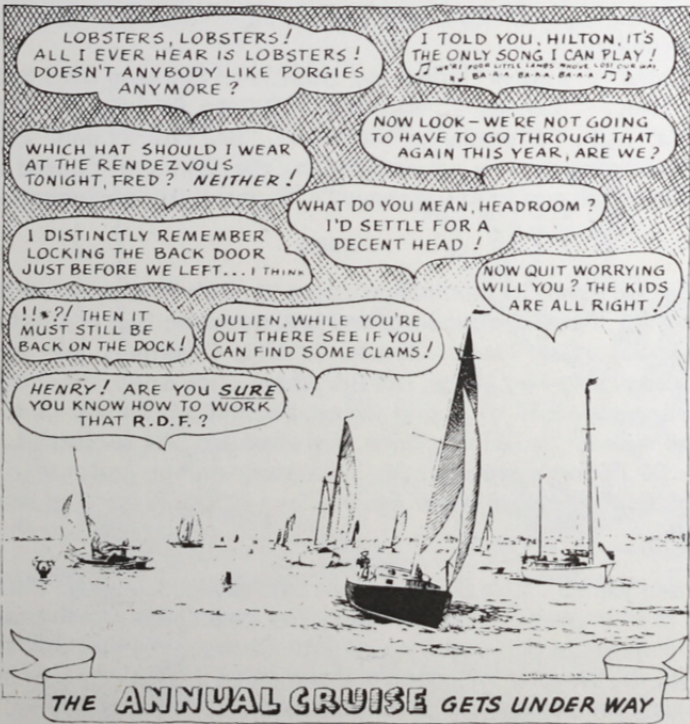 LOBSTERS, LOBSTERS!
ALL I EVER HEAR IS LOBSTERS!
DOESN'T ANYBODY LIKE PORGIES
ANYMORE?
I TOLD YOU, HILTON, IT'S
THE ONLY SONG I CAN PLAY!
♫ WE'RE POOR LITTLE LAMBS WHO'VE LOST OUR WAY
BA-A-A BA-A-A, BA-A-A ♫ ♪
WHICH HAT SHOULD I WEAR
AT THE RENDEZVOUS
TONIGHT, FRED? NEITHER!
NOW LOOK – WE'RE NOT GOING
TO HAVE TO GO THROUGH THAT
AGAIN THIS YEAR, ARE WE?
WHAT DO YOU MEAN, HEADROOM?
I'D SETTLE FOR A
DECENT HEAD!
I DISTINCTLY REMEMBER
LOCKING THE BACK DOOR
JUST BEFORE WE LEFT... I THINK
NOW QUIT WORRYING
WILL YOU? THE KIDS
ARE ALL RIGHT!
!!*?! THEN IT
MUST STILL BE
BACK ON THE DOCK!
JULIEN, WHILE YOU'RE
OUT THERE SEE IF YOU
CAN FIND SOME CLAMS!
HENRY! ARE YOU SURE
YOU KNOW HOW TO WORK
THAT R.D.F.?
THE ANNUAL CRUISE GETS UNDER WAY